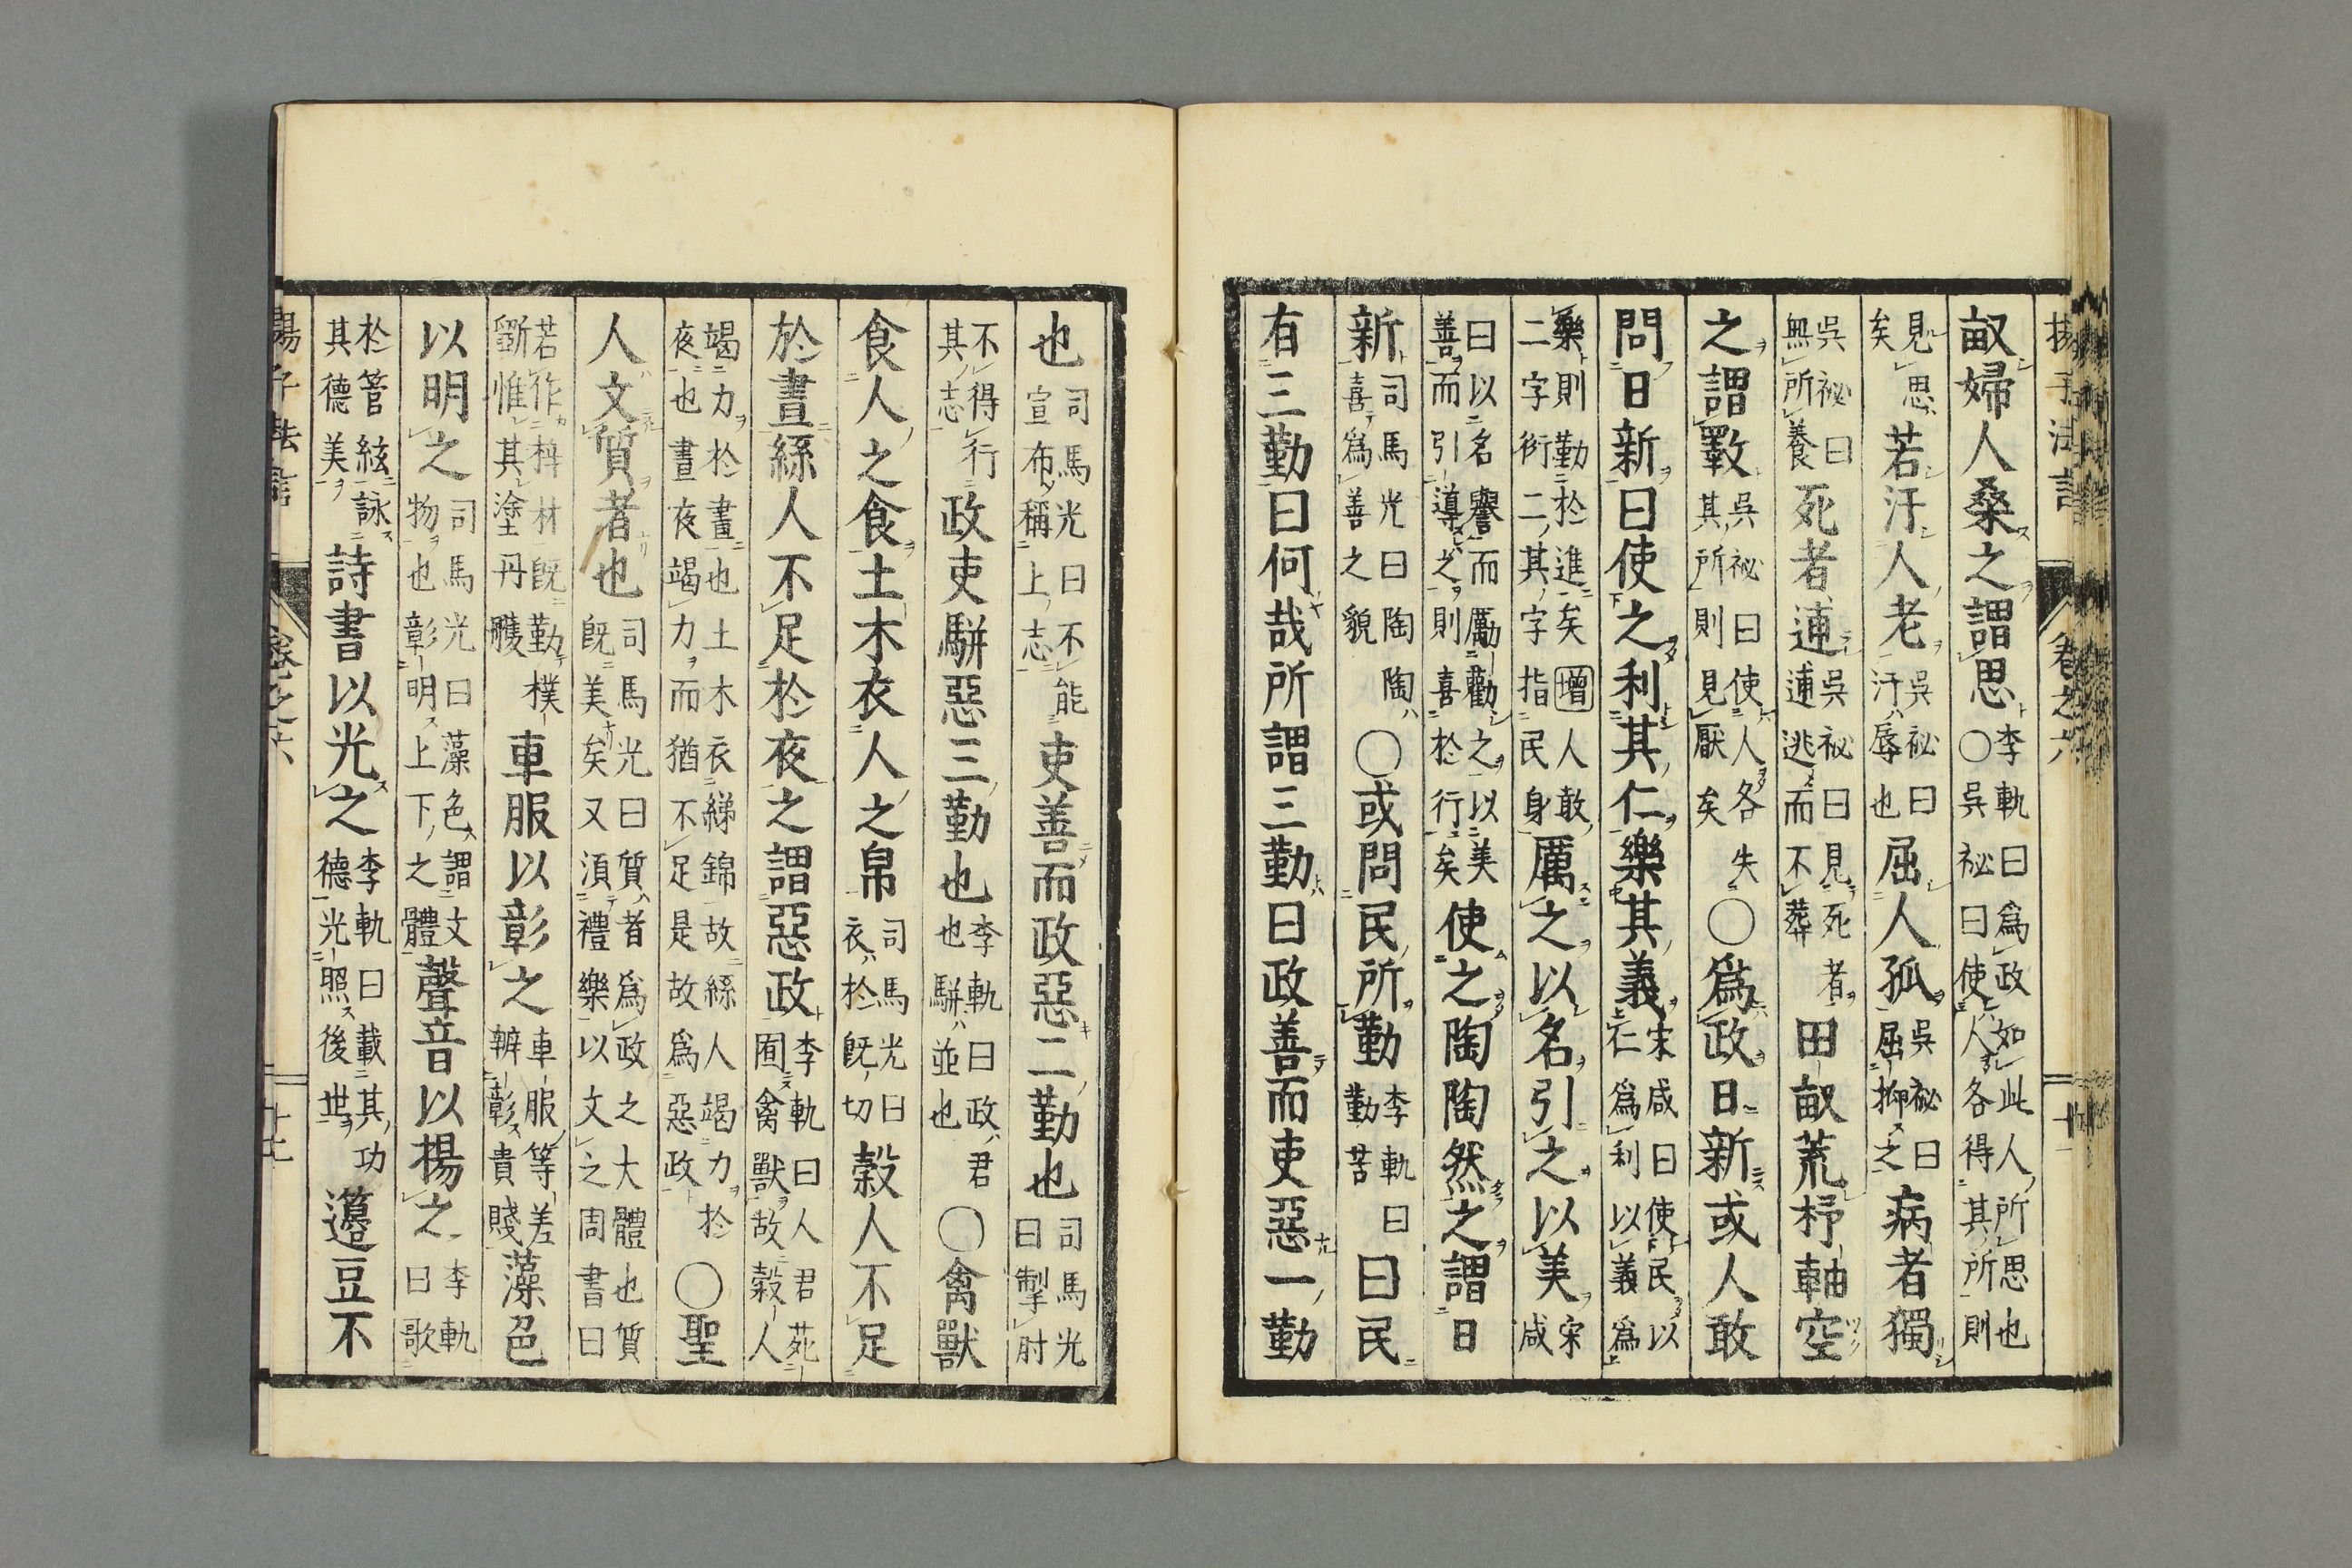 揚子法言 卷之六
畝婦人桑之謂思李軌曰爲政如此人所思也○吳祕曰使人各得其所則
見思矣若汙人老吳祕曰汙辱也屈人孤吳祕曰屈抑之病者獨
吳祕曰無所養死者逋吳祕曰見死者逋逃而不葬田畝荒杼軸空
之謂斁吳祕曰使人各失其所則見厭矣○爲政日新或人敢
問日新曰使之利其仁樂其義宋咸曰使民以仁爲利以義爲
樂則勤於進矣增人敢二字衍二其字指民身厲之以名引之以美宋咸
曰以名譽而厲勸之以美善而引導之則喜於行矣使之陶陶然之謂日
新司馬光曰陶陶喜爲善之貌○或問民所勤李軌曰勤苦曰民
有三勤曰何哉所謂三勤曰政善而吏惡一勤
也司馬光曰不能宣布稱上志吏善而政惡二勤也司馬光曰掣肘
不得行其志政吏駢惡三勤也李軌曰政君也駢並也○禽獸
食人之食土木衣人之帛司馬光曰衣於旣切穀人不足
於晝絲人不足於夜之謂惡政李軌曰人君苑囿禽獸故穀人
竭力於晝也土木衣綈錦故絲人竭力於夜也晝夜竭力而猶不足是故爲惡政○聖
人文質者也司馬光曰質者爲政之大體也質旣美矣又須禮樂以文之周書曰
若作梓材旣勤樸斲惟其塗丹雘車服以彰之車服等差辨彰貴賤藻色
以明之司馬光曰藻色謂文物也彰明上下之體聲音以揚之李軌曰歌
於管絃詠其德美詩書以光之李軌曰載其功德光照後世籩豆不